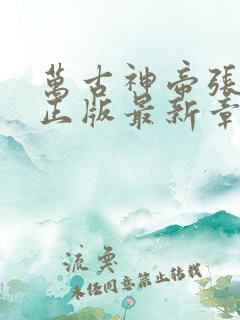 萬古神帝張
正版最新章
流奠
未經同意禁止轉載